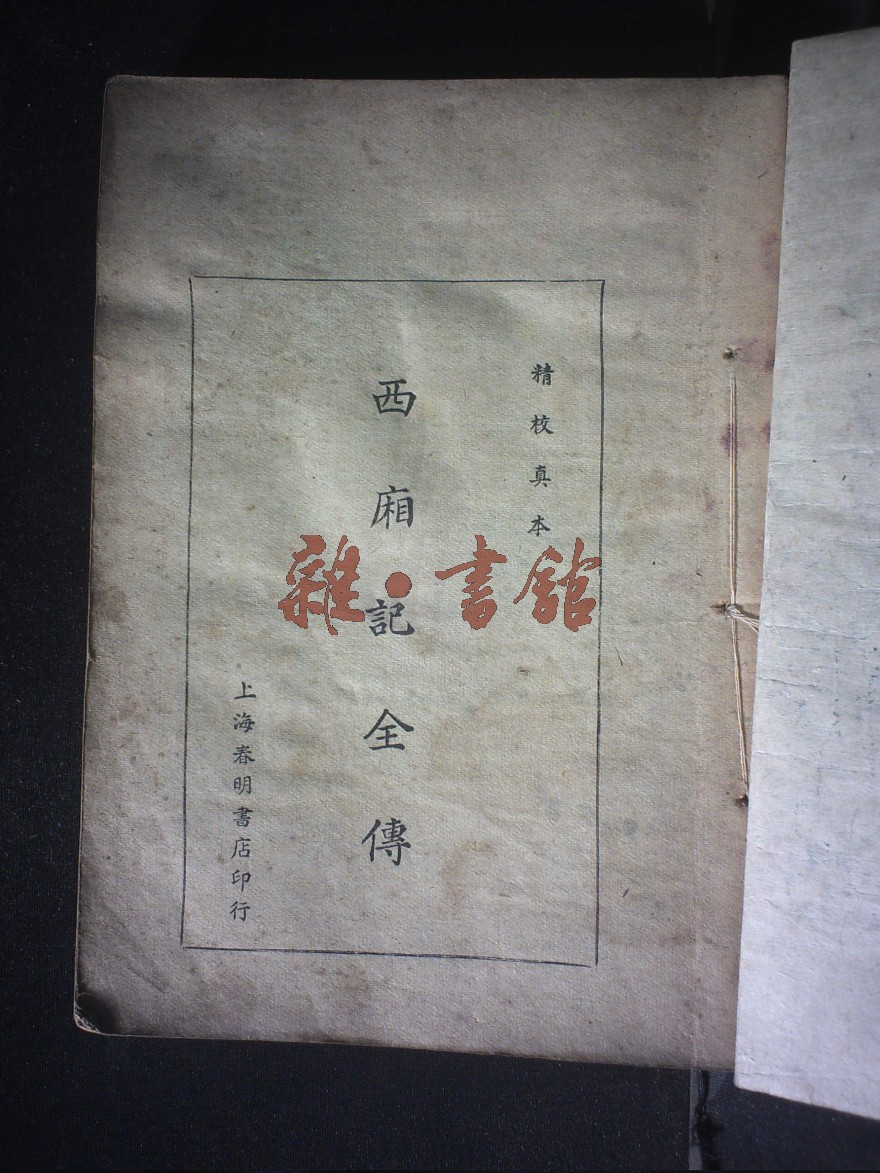 精校真本
西廂記全傳
上海春明書店印行
雜·書館